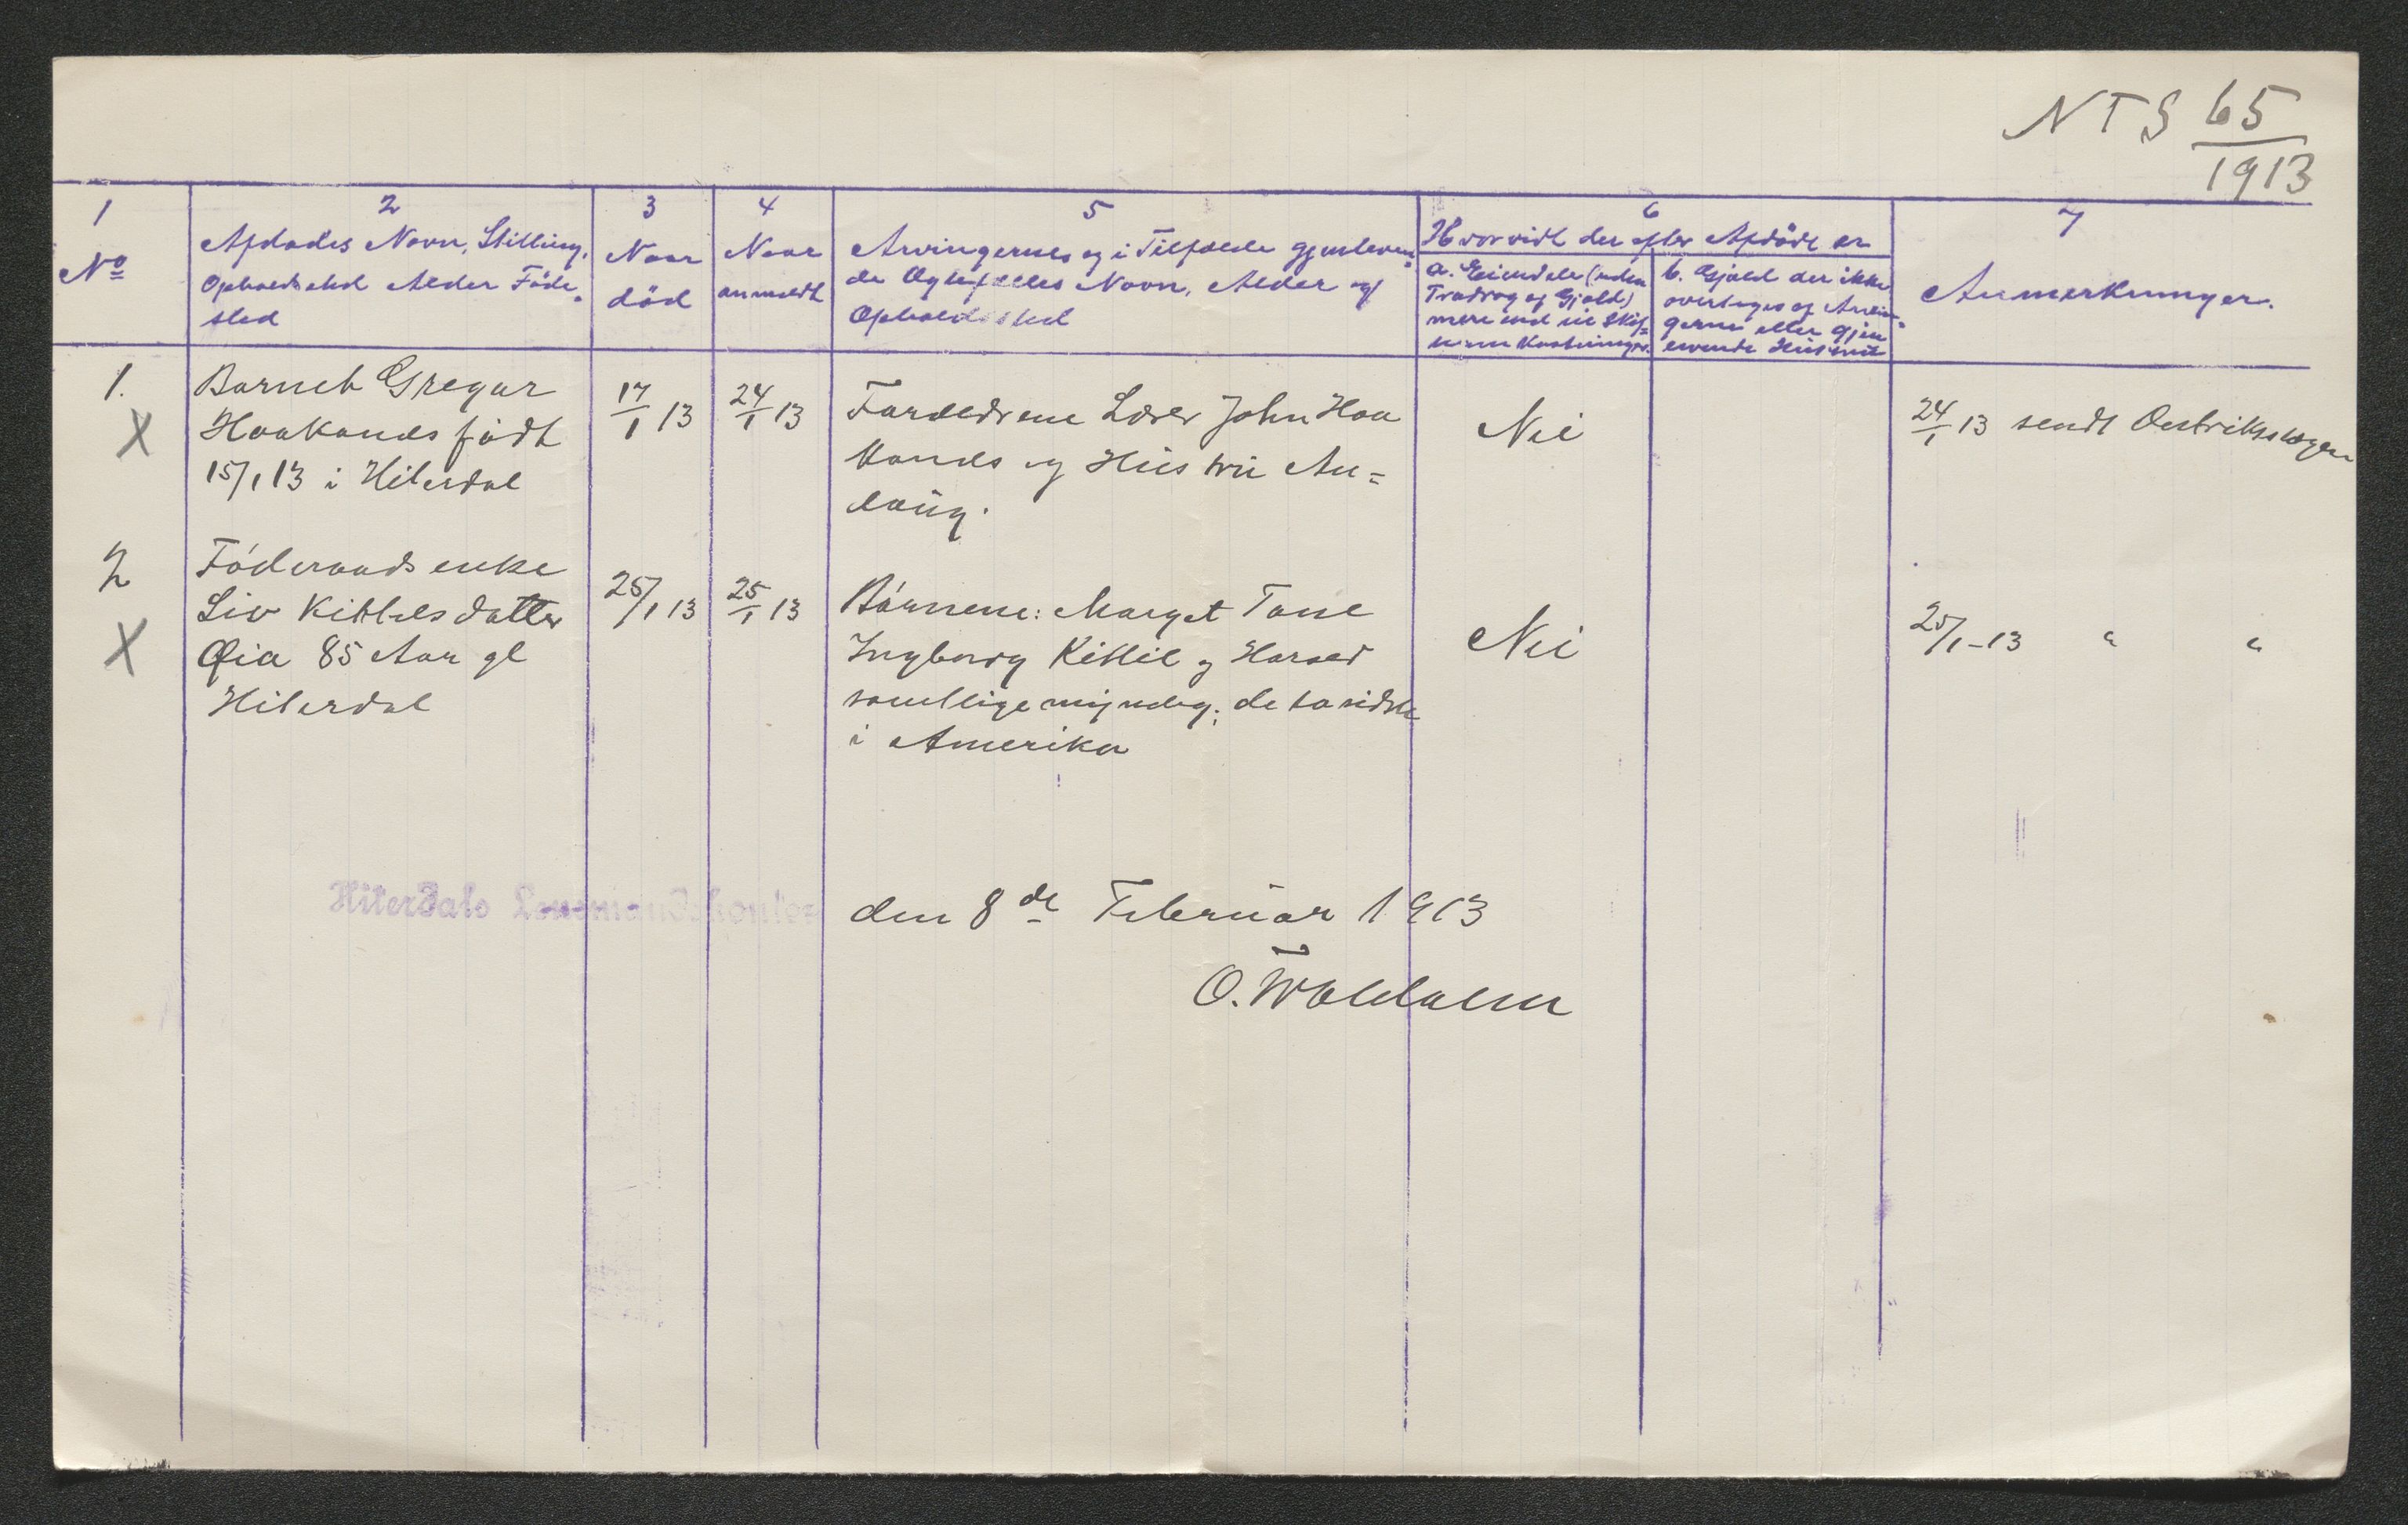 NTS 65/1913
1
No
2
Afdødes Navn, Stilling,
Opholdssted Alder Føde-
sted
3
Naar
död
4
Naar
anmeldt
5
Arvingernes og i Tilfælde gjenleven-
de Ægtefælles Navn, Alder og
Opholdssted
6
Hvorvidt der efter Afdöde er
a. Eiendele (uden
Fradrag af Gjæld)
mere end til Skif-
b. Gjæld der ikke
overtages af Arvin-
gerne eller gjen
levende Hustru
7
Anmerkninger.
1.
X
Barnet Gregar
Haakanes födt
15/1 13 i Hiterdal
17/1 13
24/1 13
Forældrene Lærer John Haa
kanes og Hustru An=
laug.
Nei
24/1 13 sendt Destriktslægen
2
X
Föderaads enke
Liv Kittelsdatter
Øia 85 Aar gl
Hiterdal
25/1 13
25/1 13
Börnene: Marget Tone
Ingeborg Kittil og Harald
samtlige myndig; de to sidste
i Amerika
Nei
25/1-13 " "
Hiterdals Lensmandskontor
den 8de Februar 1913